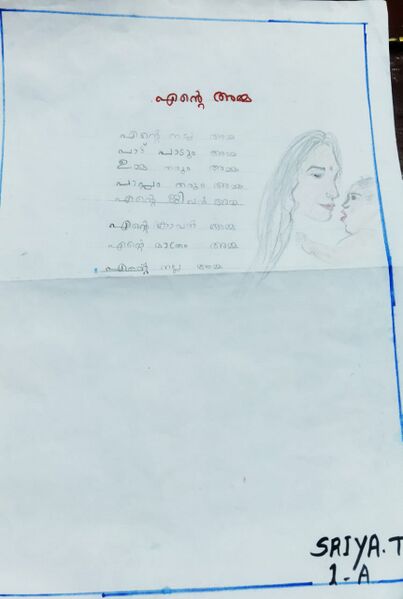 എന്റെ അമ്മ
എന്റെ നല്ല അമ്മ
പാട്ട് പാടും അമ്മ
ഉമ്മ തരും അമ്മ
തരും അമ്മ
എന്റെ ജീവൻ അമ്മ
എന്റെ അമ്മ
എന്റെ മാത്രം അമ്മ
എന്റെ നല്ല അമ്മ
SRIYA.T
1-A